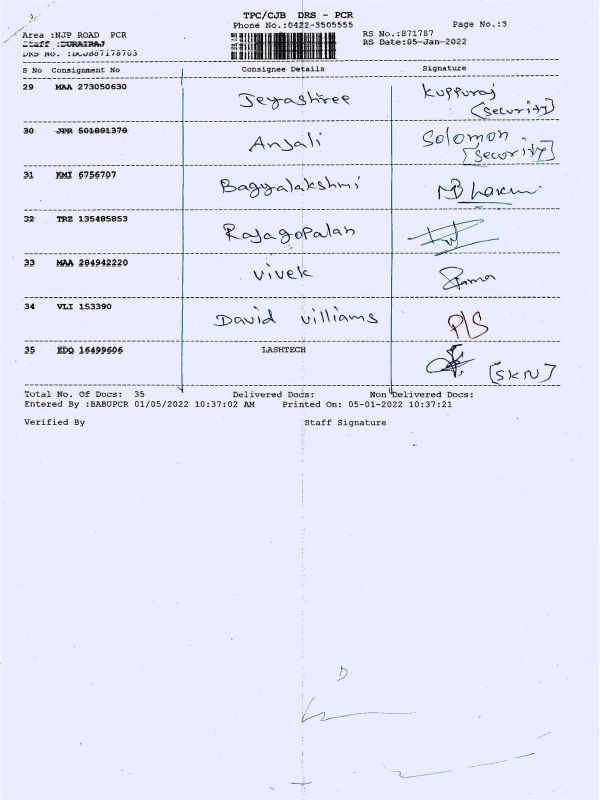 TPC/CJB DRS - PCR
Phone No.:0422-3505555
Page No.:3
Area :NJP ROAD PCR
RS No.:871787
Staff :DURAIRAJ
RS Date:05-Jan-2022
DRS No. :DCJB87178703
S No Consignment No Consignee Details Signature
29 MAA 273050630 Jeyashree Kuppuraj
[Security]
30 JPR 501891379 Anjali Solomon
[Security]
31 KMI 6756707 Bagyalakshmi
32 TRZ 135485853 Rajagopalan
33 MAA 284942220 Vivek
34 VLI 153390 David villiams P/S
35 EDQ 16499606 LASHTECH
[SKN]
Total No. Of Docs: 35 Delivered Docs: Non Delivered Docs:
Entered By :BABUPCR 01/05/2022 10:37:02 AM Printed On: 05-01-2022 10:37:21
Verified By Staff Signature